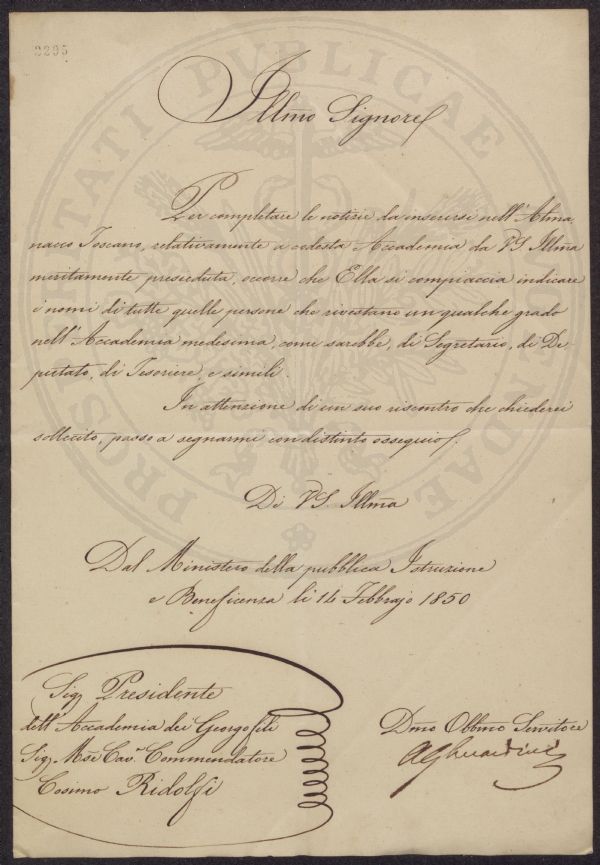 2295
Illmo Signore
Per completare le notizie da inserirsi nell'Alma
nacco Toscano, relativamente a codesta Accademia da VS Illma
meritamente presieduta, occorre che Ella si compiaccia indicare
i nomi di tutte quelle persone che rivestano un qualche grado
nell'Accademia medesima, come sarebbe, di Segretario, di De
putato, di Tesoriere, e simili.
In attenzione di un suo riscontro che chiederei
sollecito, passo a segnarmi con distinto ossequio.
Di VS. Illma
Dal Ministero della pubblica Istruzione
e Beneficenza li 14 Febbrajo 1850
Sig. Presidente
dell'Accademia dei Georgofili
Sig. Mse Cav. Commendatore
Cosimo Ridolfi
Dmo Obbmo Servitore
PROSPERITATI PUBLICAE AUGENDAE